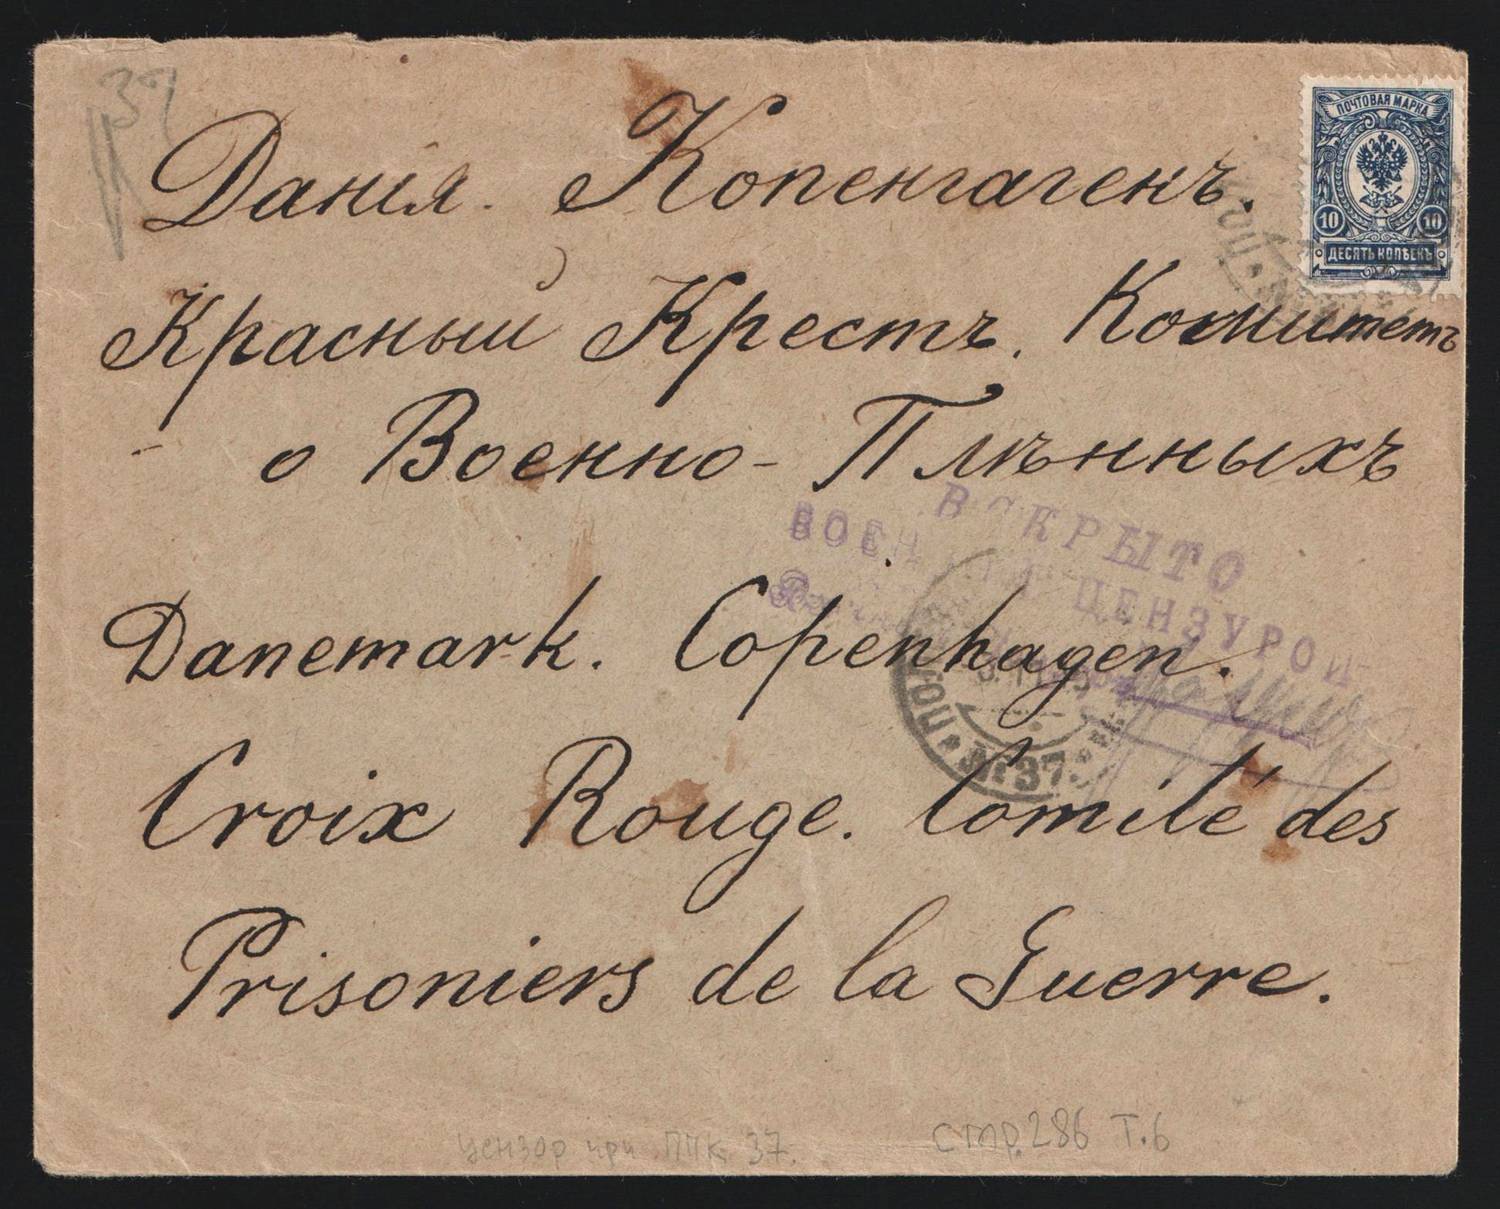 39
ПОЧТОВАЯ МАРКА
10 10
ДЕСЯТЬ КОПѢЕКЪ
Данія. Копенгагенъ.
Красный Крестъ. Комитетъ
о Военно-Плѣнныхъ
ВСКРЫТО
ВОЕННОЙ ЦЕНЗУРОЙ
Danemark. Copenhagen.
№37
Croix Rouge. Comité des
Prisoniers de la Guerre.
цензор при ППК 37.
стр. 286 Т.6